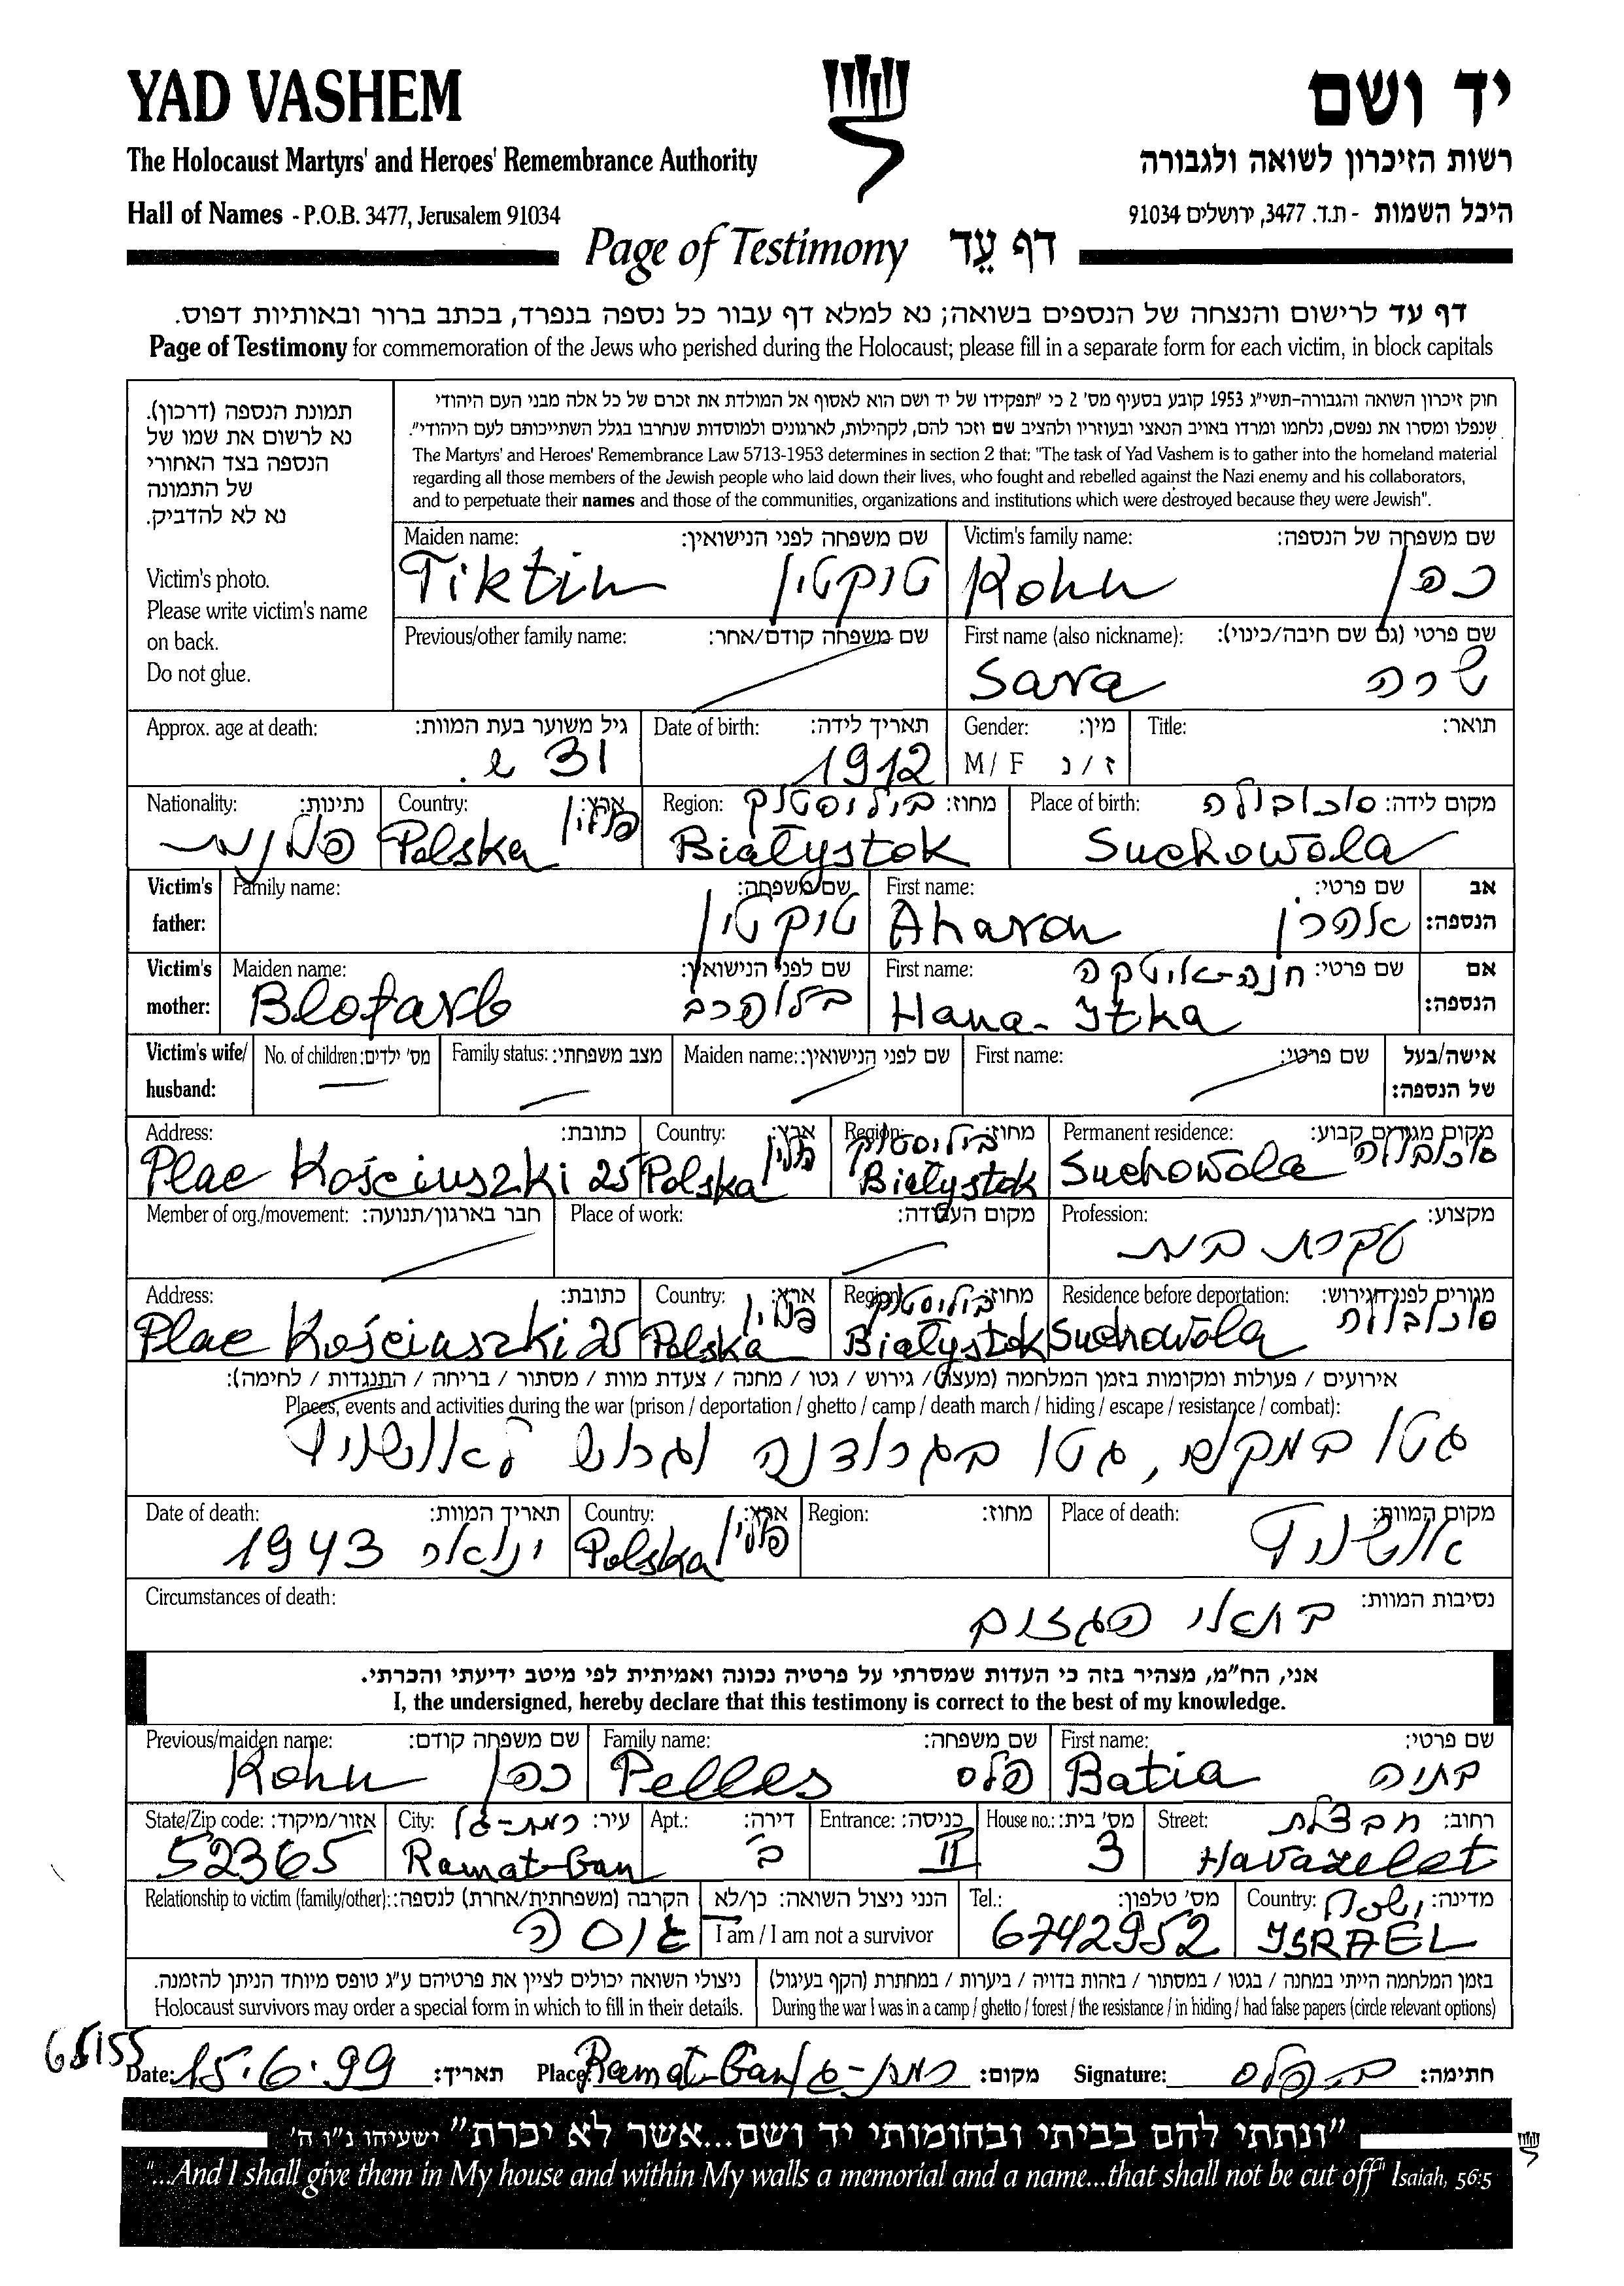 YAD VASHEM
יד ושם
The Holocaust Martyrs' and Heroes' Remembrance Authority
רשות הזיכרון לשואה ולגבורה
Hall of Names - P.O.B. 3477, Jerusalem 91034
היכל השמות - ת.ד. 3477, ירושלים 91034
Page of Testimony דף עֵד
דף עד לרישום והנצחה של הנספים בשואה; נא למלא דף עבור כל נספה בנפרד, בכתב ברור ובאותיות דפוס.
Page of Testimony for commemoration of the Jews who perished during the Holocaust; please fill in a separate form for each victim, in block capitals
תמונת הנספה (דרכון).
נא לרשום את שמו של
הנספה בצד האחורי
של התמונה
נא לא להדביק.
Victim's photo.
Please write victim's name
on back.
Do not glue.
חוק זיכרון השואה והגבורה-תשי"ג 1953 קובע בסעיף מס' 2 כי "תפקידו של יד ושם הוא לאסוף אל המולדת את זכרם של כל אלה מבני העם היהודי
שנפלו ומסרו את נפשם, נלחמו ומרדו באויב הנאצי ובעוזריו ולהציב שם וזכר להם, לקהילות, לארגונים ולמוסדות שנחרבו בגלל השתייכותם לעם היהודי".
The Martyrs' and Heroes' Remembrance Law 5713-1953 determines in section 2 that: "The task of Yad Vashem is to gather into the homeland material
regarding all those members of the Jewish people who laid down their lives, who fought and rebelled against the Nazi enemy and his collaborators,
and to perpetuate their names and those of the communities, organizations and institutions which were destroyed because they were Jewish".
Maiden name: שם משפחה לפני הנישואין: Victim's family name: שם משפחה של הנספה:
Tiktin טיקטין Kohn כהן
Previous/other family name: שם משפחה קודם/אחר: First name (also nickname): שם פרטי (גם שם חיבה/כינוי):
Sara שרה
Approx. age at death: גיל משוער בעת המוות: Date of birth: תאריך לידה: Gender: מין: Title: תואר:
31 ש. 1912 M / F ז / נ
Nationality: נתינות: Country: ארץ: Region: מחוז: ביליסטוק Place of birth: מקום לידה: סוכובולה
פולנית Polska פולין Białystok Suchowola
Victim's father: Family name: שם משפחה: First name: שם פרטי: אב הנספה:
טיקטין Aharon אהרן
Victim's mother: Maiden name: שם לפני הנישואין: First name: שם פרטי: חנה-איטקה אם הנספה:
Blofarb בלופרב Hana-Itka
Victim's wife/ husband: No. of children: מס' ילדים: Family status: מצב משפחתי: Maiden name: שם לפני הנישואין: First name: שם פרטי: אישה/בעל של הנספה:
Address: כתובת: Country: ארץ: Region: מחוז: Permanent residence: מקום מגורים קבוע:
Plac Kościuszki 25 Polska פולין ביליסטוק Białystok Suchowola סוכובולה
Member of org./movement: חבר בארגון/תנועה: Place of work: מקום העבודה: Profession: מקצוע:
עקרת בית
Address: כתובת: Country: ארץ: Region: מחוז: Residence before deportation: מגורים לפני הגירוש:
Plac Kościuszki 25 Polska פולין ביליסטוק Białystok Suchowola סוכובולה
אירועים / פעולות ומקומות בזמן המלחמה (מעצר / גירוש / גטו / מחנה / צעדת מוות / מסתור / בריחה / התנגדות / לחימה):
Places, events and activities during the war (prison / deportation / ghetto / camp / death march / hiding / escape / resistance / combat):
גטו במקום, גטו בגרודנה וגרוש לאושויץ
Date of death: תאריך המוות: Country: ארץ: Region: מחוז: Place of death: מקום המוות:
ינואר 1943 Polska פולין אושויץ
Circumstances of death: נסיבות המוות:
בתאי הגזים
אני, הח"מ, מצהיר בזה כי העדות שמסרתי על פרטיה נכונה ואמיתית לפי מיטב ידיעתי והכרתי.
I, the undersigned, hereby declare that this testimony is correct to the best of my knowledge.
Previous/maiden name: שם משפחה קודם: Family name: שם משפחה: First name: שם פרטי:
Kohn כהן Pelles פלס Batia בתיה
State/Zip code: אזור/מיקוד: City: עיר: רמת-גן Apt.: דירה: Entrance: כניסה: House no.: מס' בית: Street: רחוב: חבצלת
52365 Ramat-Gan ב' II 3 Havazelet
Relationship to victim (family/other): הקרבה (משפחתית/אחרת) לנספה: הנני ניצול השואה: כן/לא Tel.: מס' טלפון: Country: מדינה: ישראל
גיסה I am / I am not a survivor 6742952 ISRAEL
ניצולי השואה יכולים לציין את פרטיהם ע"ג טופס מיוחד הניתן להזמנה.
Holocaust survivors may order a special form in which to fill in their details.
בזמן המלחמה הייתי במחנה / בגטו / במסתור / בזהות בדויה / ביערות / במחתרת (הקף בעיגול)
During the war I was in a camp / ghetto / forest / the resistance / in hiding / had false papers (circle relevant options)
Date: 15.6.99 תאריך: Place: Ramat-Gan רמת-גן מקום: Signature: ב. פלס חתימה:
"ונתתי להם בביתי ובחומותי יד ושם...אשר לא יכרת" ישעיהו נ"ו ה'
"...And I shall give them in My house and within My walls a memorial and a name...that shall not be cut off" Isaiah, 56:5